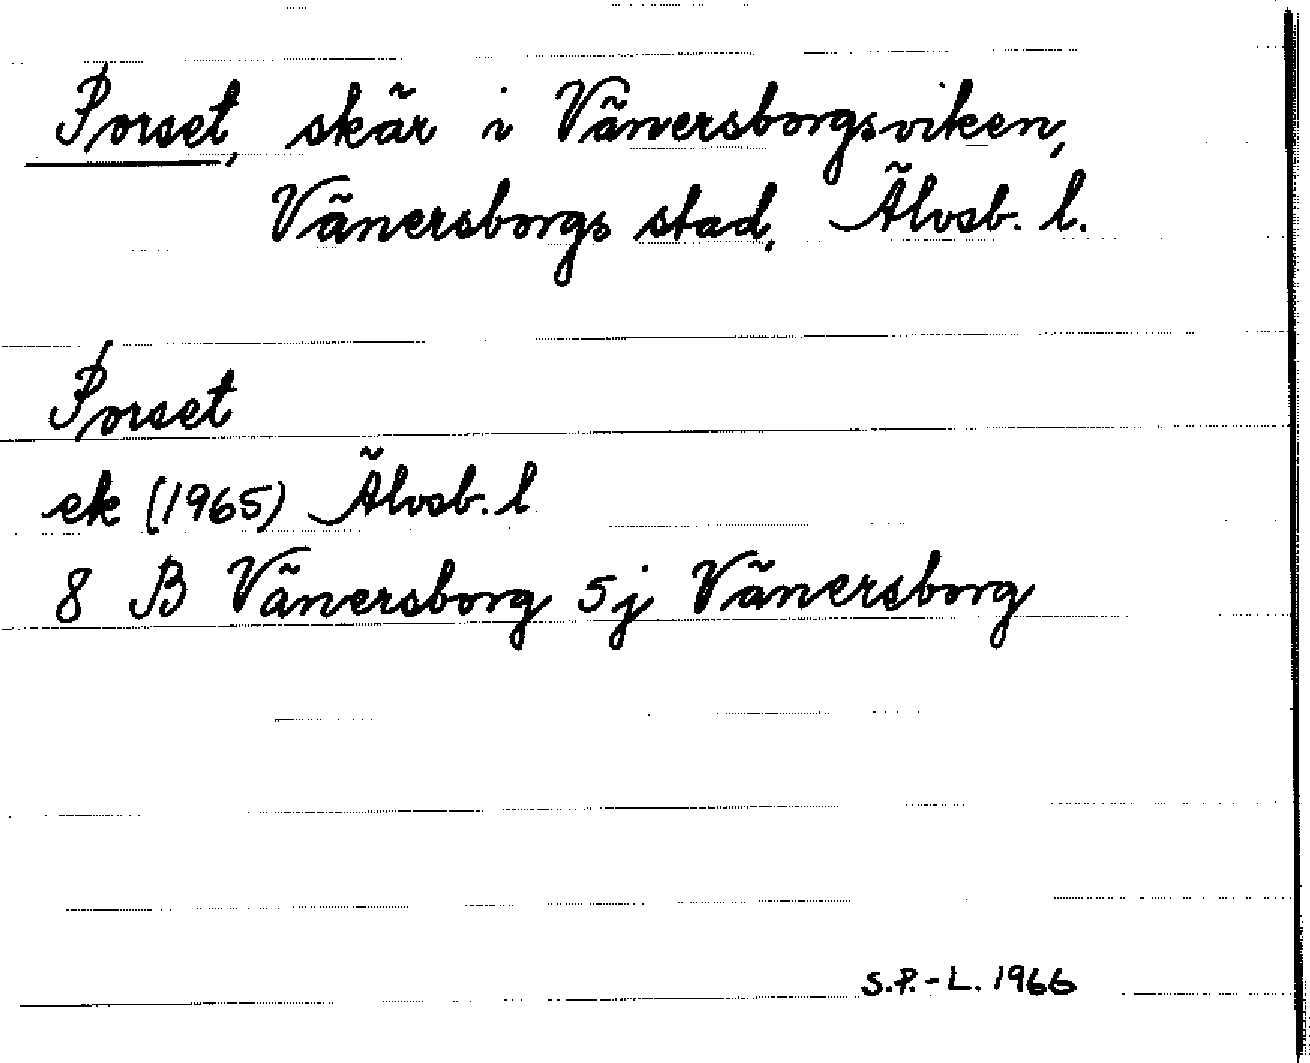 Porset, skär i Vänersborgsviken,
Vänersborgs stad, Älvsb. l.
Porset
ek (1965) Älvsb. l
8 B Vänersborg 5j Vänersborg
S.P.-L. 1966